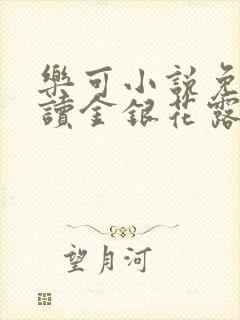 樂可小說免
讀金銀花露
望月河